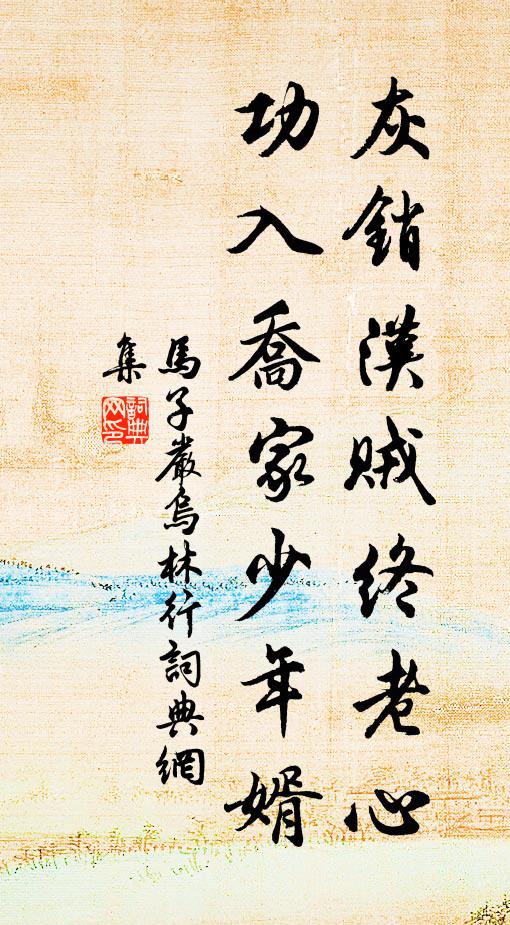 灰銷漢賊終老心
功入喬家少年婿
馬子嚴烏林行詞典網
集
詞典
网印